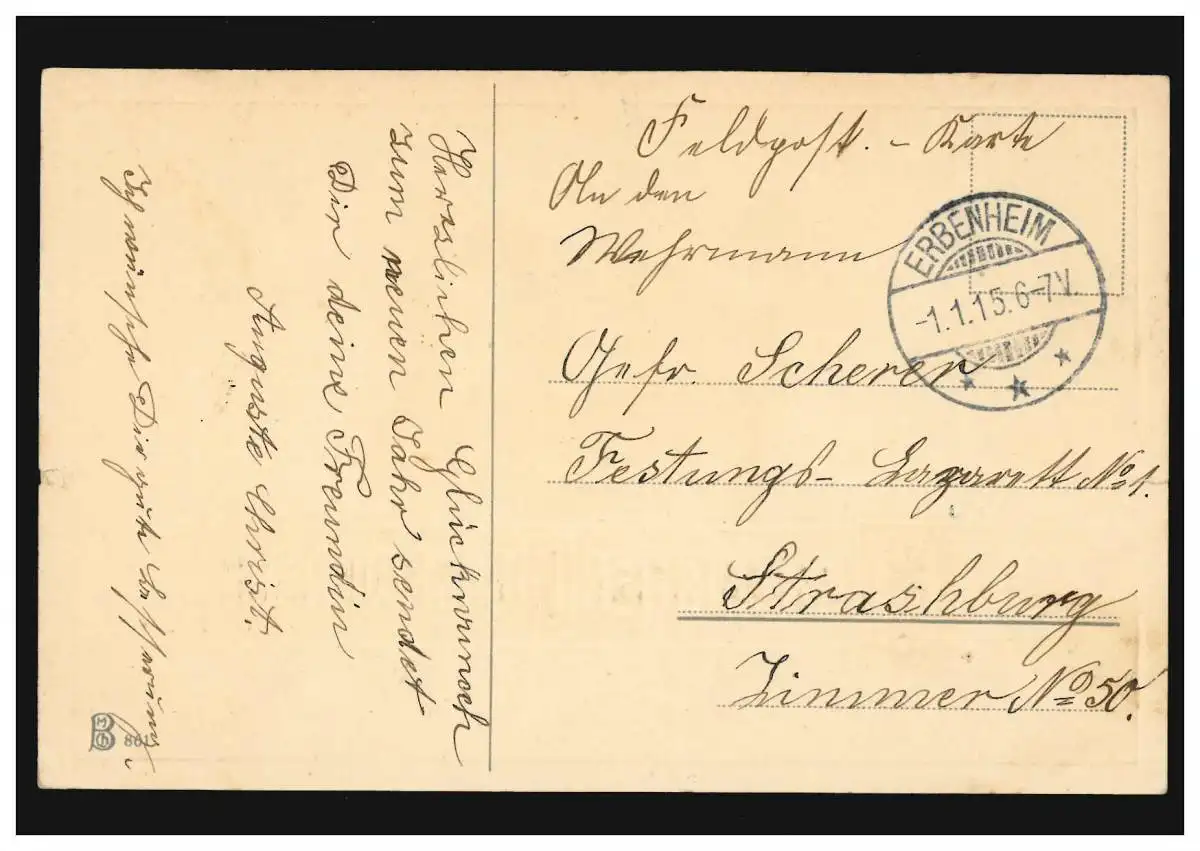 Feldpost. - Karte
An den
Wehrmann
Gefr. Scherer
Festungs- Lazarett No 1.
Strashburg
Zimmer No 50.
ERBENHEIM
-1.1.15.6-7V.
Herzlichen Glückwunsch
zum neuen Jahr sendet
Dir deine Freundin
Auguste Christ.
Ich wünsche Dir gute Besserung.